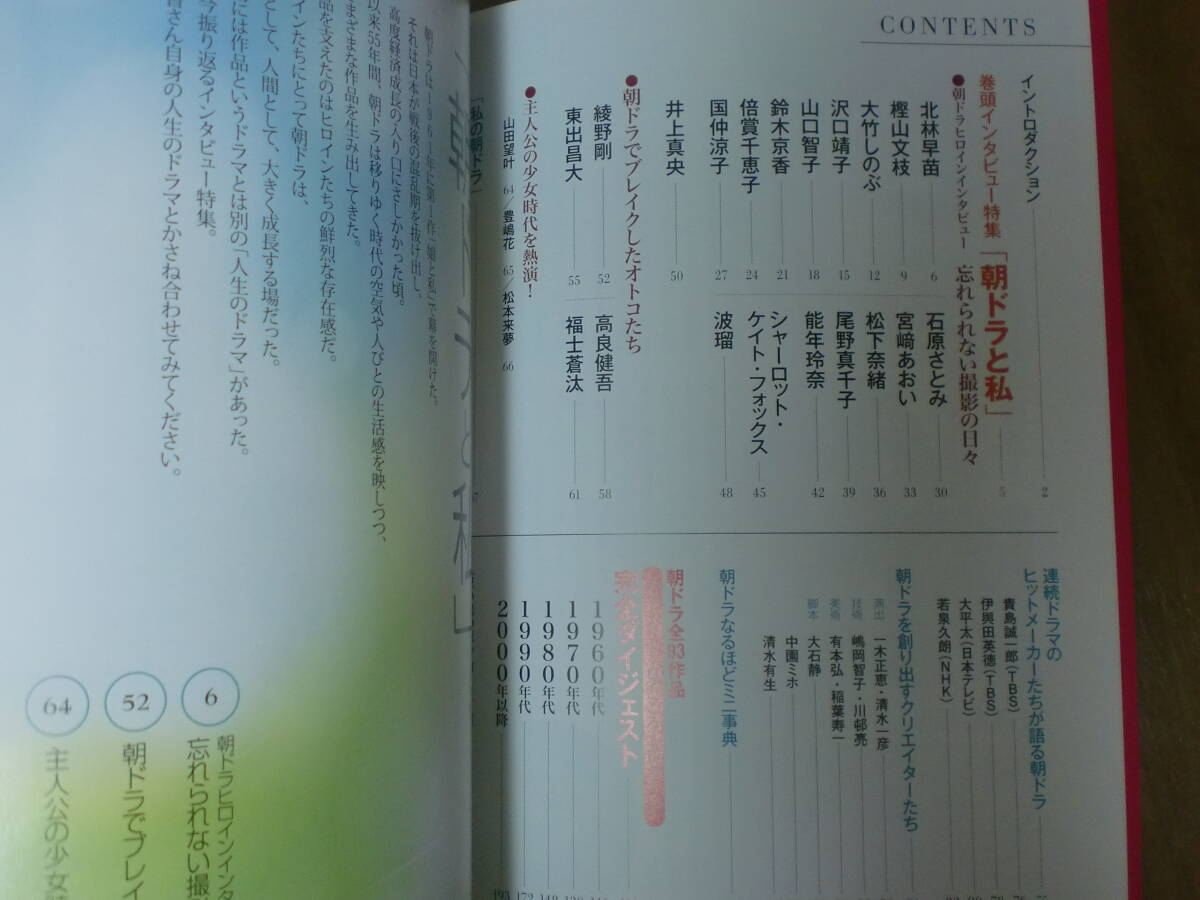 CONTENTS
イントロダクション 2
巻頭インタビュー特集 「朝ドラと私」 5
●朝ドラヒロインインタビュー 忘れられない撮影の日々
北林早苗 6
樫山文枝 9
大竹しのぶ 12
沢口靖子 15
山口智子 18
鈴木京香 21
倍賞千恵子 24
国仲涼子 27
石原さとみ 30
宮﨑あおい 33
松下奈緒 36
尾野真千子 39
能年玲奈 42
シャーロット・
ケイト・フォックス 45
波瑠 48
井上真央 50
●朝ドラでブレイクしたオトコたち
綾野剛 52
東出昌大 55
高良健吾 58
福士蒼汰 61
●主人公の少女時代を熱演!
山田望叶 64/豊嶋花 65/松本来夢 66
「私の朝ドラ」
連続ドラマの
ヒットメーカーたちが語る朝ドラ
貴島誠一郎(TBS)
伊與田英徳(TBS)
大平太(日本テレビ)
若泉久朗(NHK)
朝ドラを創り出すクリエイターたち
演出 一木正恵・清水一彦
技術 嶋岡智子・川邨亮
美術 有本弘・稲葉寿一
脚本 大石静
中園ミホ
清水有生
朝ドラなるほどミニ事典
朝ドラ全93作品
完全ダイジェスト
1960年代
1970年代
1980年代 148
1990年代 172
2000年以降 193
「朝ドラと私」
朝ドラは1961年に第1作「娘と私」で幕を開けた。
それは日本が戦後の混乱期を抜け出し、
高度経済成長の入り口にさしかかった頃。
以来55年間、朝ドラは移りゆく時代の空気や人びとの生活感を映しつつ、
まざまな作品を生み出してきた。
品を支えたのはヒロインたちの鮮烈な存在感だ。
インたちにとって朝ドラは、
として、人間として、大きく成長する場だった。
には作品というドラマとは別の「人生のドラマ」があった。
今振り返るインタビュー特集。
皆さん自身の人生のドラマとかさね合わせてみてください。
6 朝ドラヒロインインタ
忘れられない撮
52 朝ドラでブレイ
64 主人公の少女時